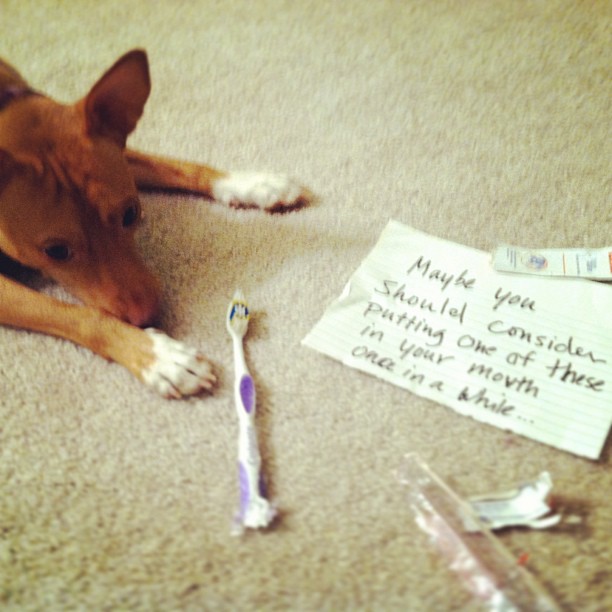 Maybe you
Should consider
putting one of these
in your mouth
once in a while...